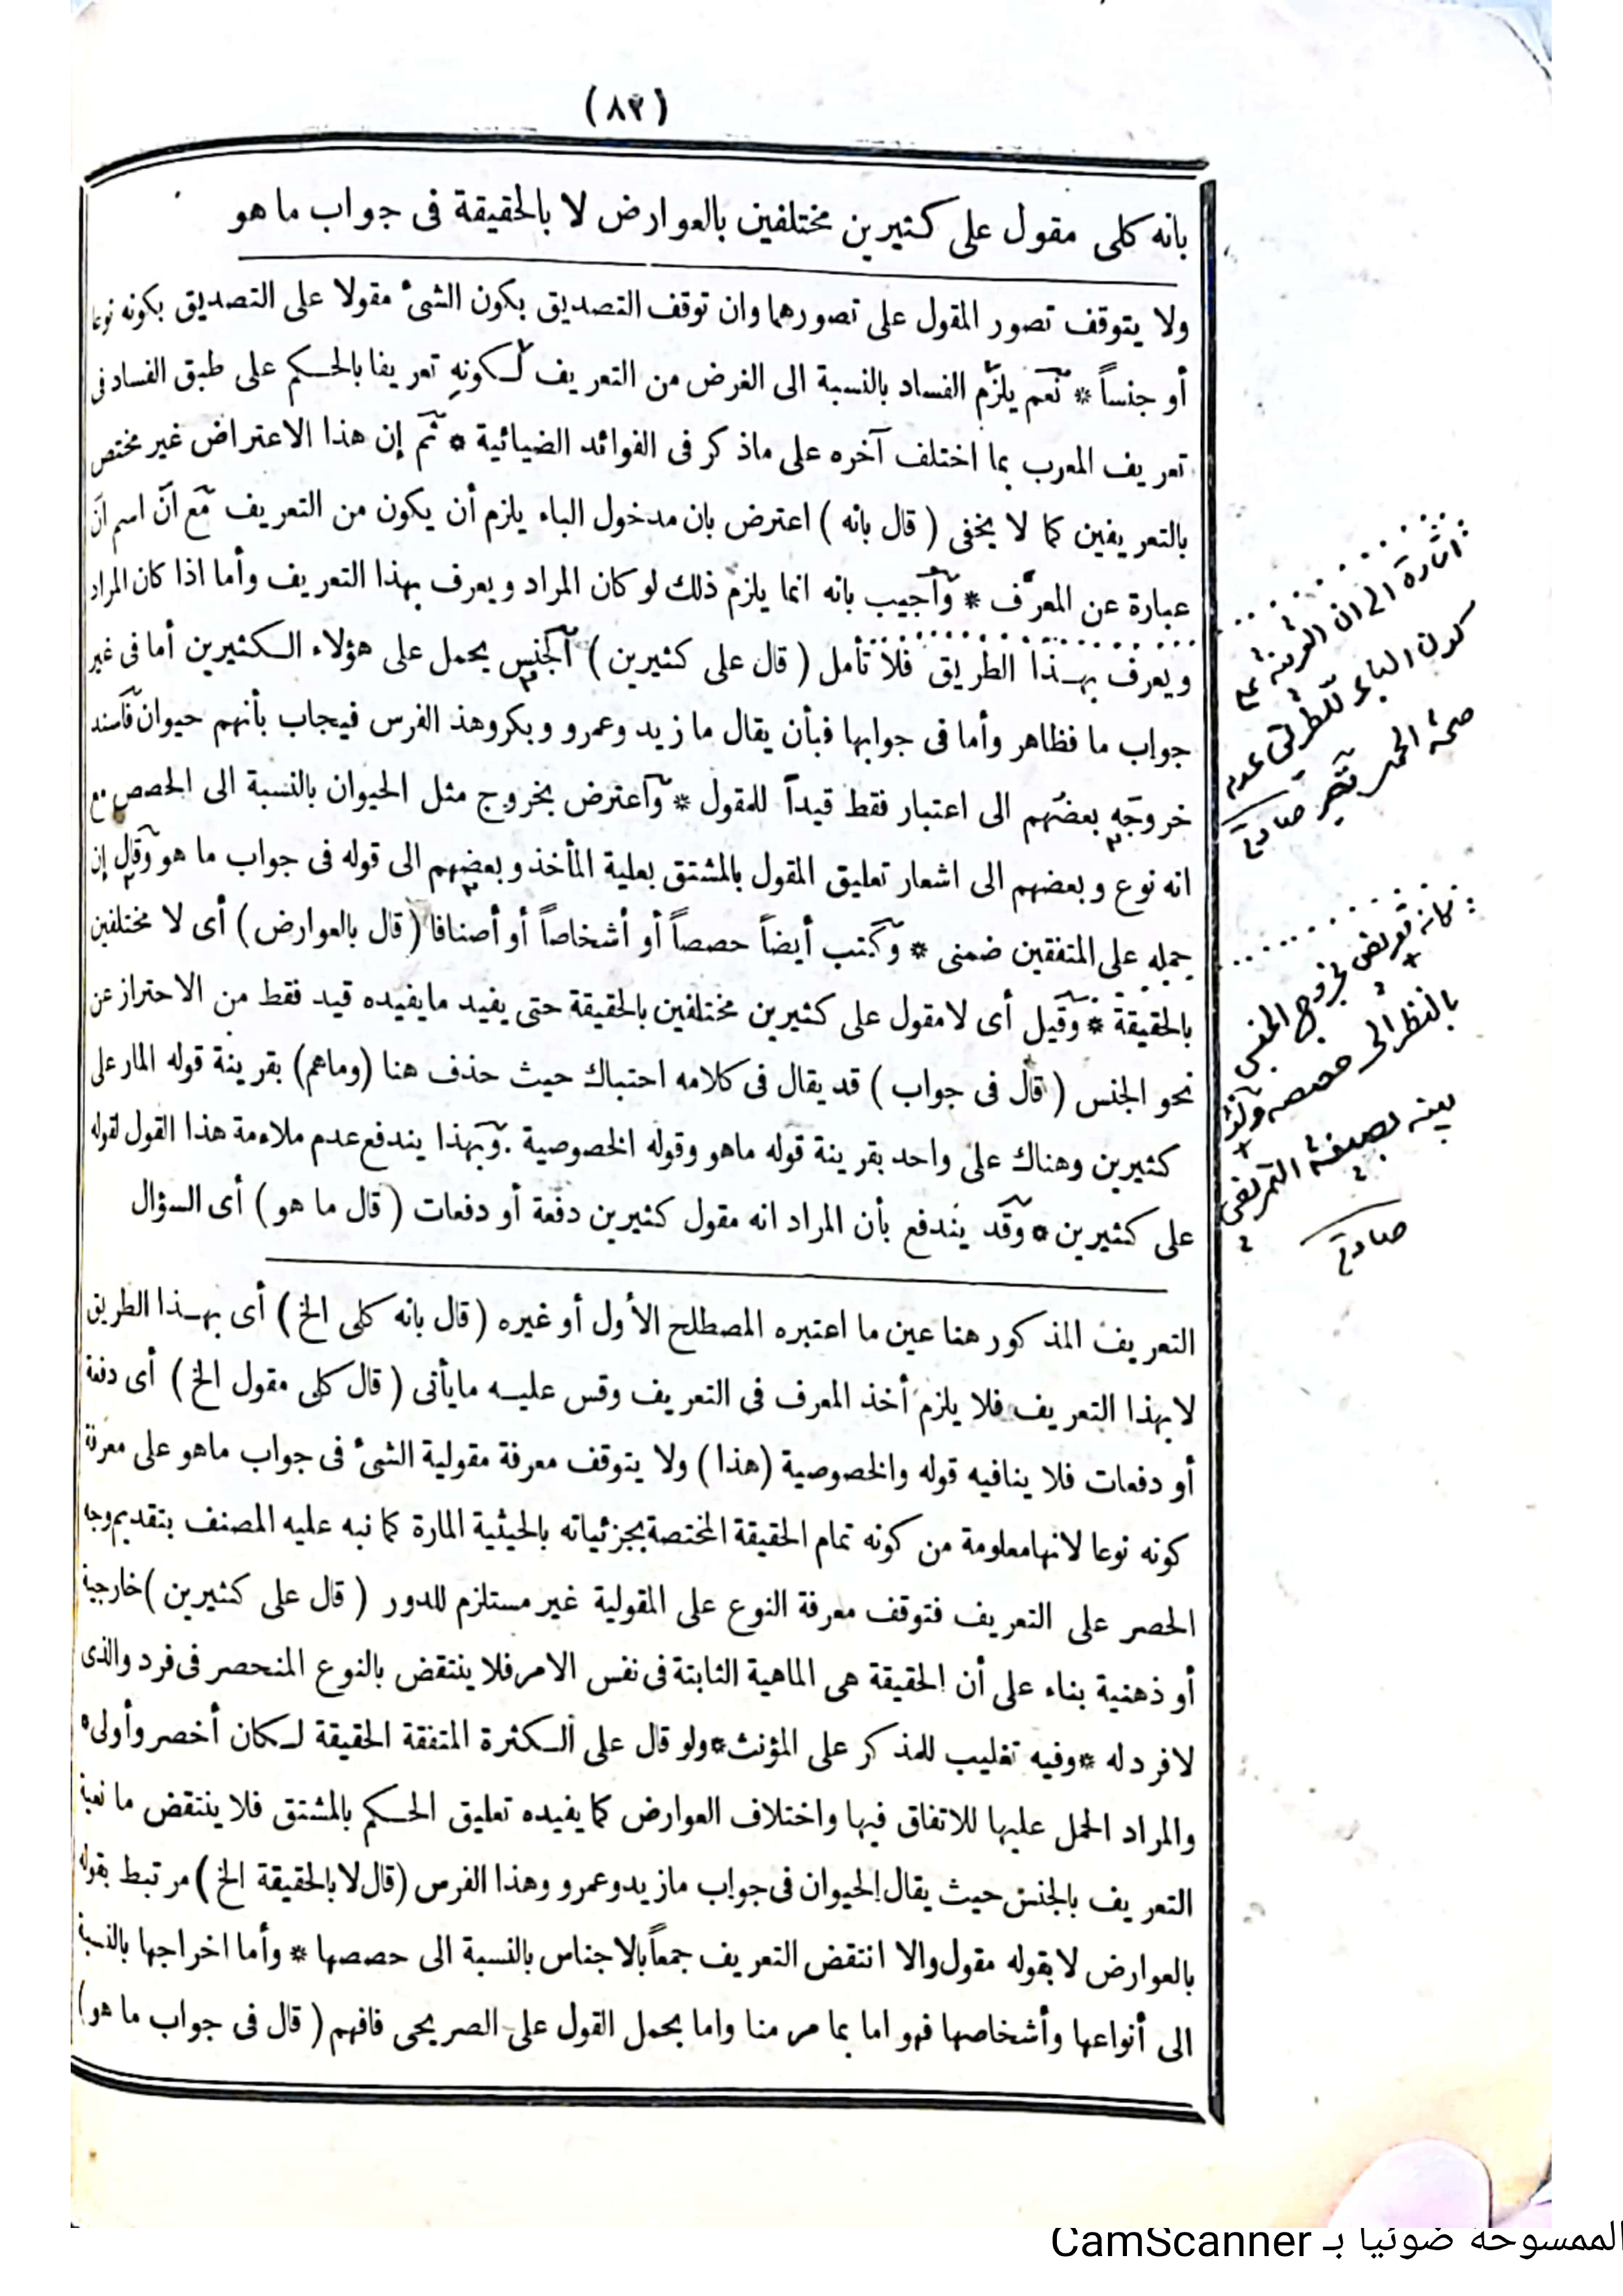 (٨٢)
بانه كلى مقول على كثيرين مختلفين بالعوارض لا بالحقيقة فى جواب ما هو
ولا يتوقف تصور المقول على تصورهما وان توقف التصديق بكون الشىء مقولا على التصديق بكونه نوعا
أو جنساً * نعم يلزم الفساد بالنسبة الى الغرض من التعريف لكونه تعريفا بالحكم على طبق الفساد فى
تعريف المعرب بما اختلف آخره على ماذكر فى الفوائد الضيائية * ثم إن هذا الاعتراض غير مختص
بالتعريفين كما لا يخفى ( قال بانه ) اعترض بان مدخول الباء يلزم أن يكون من التعريف مع ان اسم ان
عبارة عن المعرّف * وأجيب بانه انما يلزم ذلك لو كان المراد ويعرف بهذا التعريف وأما اذا كان المراد
ويعرف بهذا الطريق فلا تأمل ( قال على كثيرين ) الجنس يحمل على هؤلاء الكثيرين أما فى غير
جواب ما فظاهر وأما فى جوابها فبأن يقال ما زيد وعمرو وبكر وهذ الفرس فيجاب بأنهم حيوان فأسند
خروجه بعضهم الى اعتبار فقط قيداً للمقول * واعترض بخروج مثل الحيوان بالنسبة الى الحصص مع
انه نوع وبعضهم الى اشعار تعليق المقول بالمشتق بعلية المأخذ وبعضهم الى قوله فى جواب ما هو وقال إن
حمله على المتفقين ضمنى * وكتب أيضاً حصصاً أو أشخاصاً أو أصنافا ( قال بالعوارض ) أى لا مختلفين
بالحقيقة * وقيل أى لامقول على كثيرين مختلفين بالحقيقة حتى يفيد مايفيده قيد فقط من الاحتراز عن
نحو الجنس ( قال فى جواب ) قد يقال فى كلامه احتباك حيث حذف هنا (وماهم) بقرينة قوله المار على
كثيرين وهناك على واحد بقرينة قوله ماهو وقوله الخصوصية . وبهذا يندفع عدم ملاءمة هذا القول لقوله
على كثيرين * وقد يندفع بأن المراد انه مقول كثيرين دفعة أو دفعات ( قال ما هو ) أى السؤال
التعريف المذكور هنا عين ما اعتبره المصطلح الأول أو غيره ( قال بانه كلى الخ ) أى بهذا الطريق
لا بهذا التعريف فلا يلزم أخذ المعرف فى التعريف وقس عليه مايأتى ( قال كلى مقول الخ ) أى دفعة
أو دفعات فلا ينافيه قوله والخصوصية (هذا) ولا يتوقف معرفة مقولية الشىء فى جواب ماهو على معرفة
كونه نوعا لانها معلومة من كونه تمام الحقيقة المختصة بجزئياته بالحيثية المارة كما نبه عليه المصنف بتقديم وجه
الحصر على التعريف فتوقف معرفة النوع على المقولية غير مستلزم للدور ( قال على كثيرين ) خارجية
أو ذهنية بناء على أن الحقيقة هى الماهية الثابتة فى نفس الامر فلا ينتقض بالنوع المنحصر فى فرد والذى
لا فرد له * وفيه تغليب للمذكر على المؤنث * ولو قال على الكثرة المتفقة الحقيقة لكان أخصر وأولى *
والمراد الحمل عليها للاتفاق فيها واختلاف العوارض كما يفيده تعليق الحكم بالمشتق فلا ينتقض مانعية
التعريف بالجنس حيث يقال الحيوان فى جواب ما زيد وعمرو وهذا الفرس (قال لا بالحقيقة الخ ) مرتبط بقوله
بالعوارض لا بقوله مقول والا انتقض التعريف جمعاً بالاجناس بالنسبة الى حصصها * وأما اخراجها بالنسبة
الى أنواعها وأشخاصها فهو اما بما مر منا واما بحمل القول على الصريحى فافهم ( قال فى جواب ما هو )
اشارة الى ان القرينة على
كون الباء للطريق عدم
صحة الحمل
كانه تعريض لخروج الجنس
بالنظر الى حصصه ولذا
بصيغة التمريض
الممسوحة ضوئيا بـ CamScanner